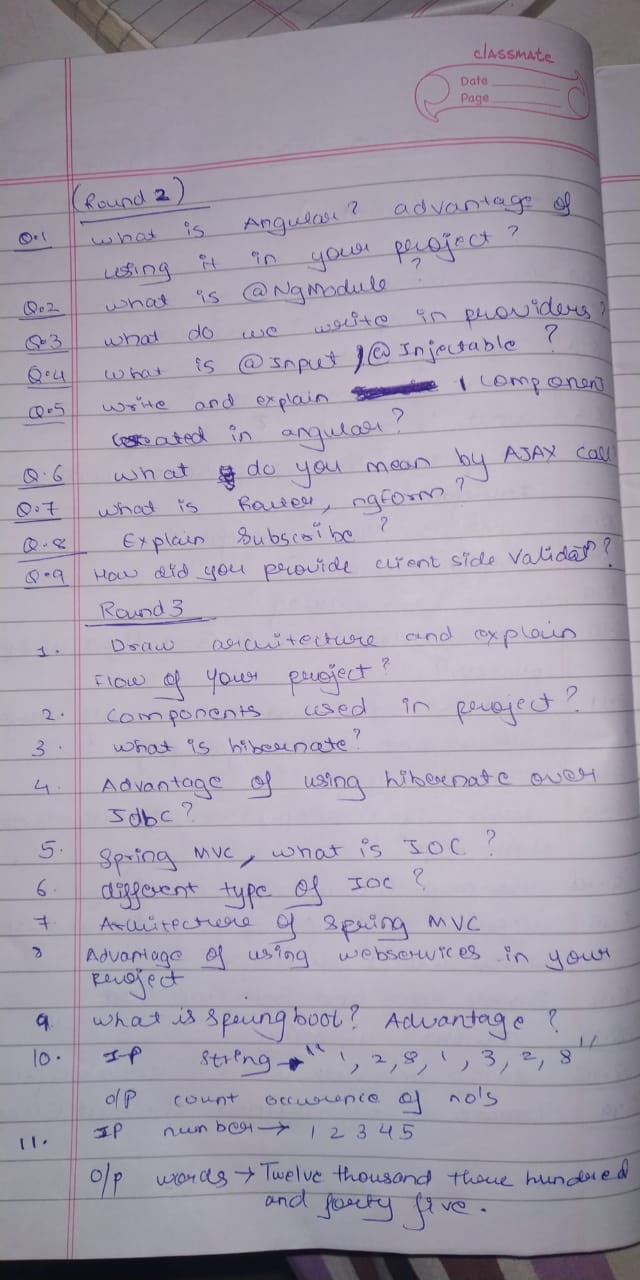 classmate
Date
Page
(Round 2)
Q.1 what is Angular? advantage of
using it in your project?
Q.2 what is @NgModule?
Q.3 what do we write in providers?
Q.4 what is @Input, @Injectable?
Q.5 write and explain 1 component
created in angular?
Q.6 what do you mean by AJAX call
Q.7 what is Router, ngform?
Q.8 Explain Subscribe?
Q.9 How did you provide client side Validatn?
Round 3
1. Draw architecture and explain
Flow of your project?
2. Components used in project?
3. what is hibernate?
4. Advantage of using hibernate over
Jdbc?
5. Spring MVC, what is IOC?
6. different type of IOC?
7 Architecture of Spring MVC
8 Advantage of using webservices in your
Project
9. what is Spring boot? Advantage?
10. IP String → "1, 2, 8, 1, 3, 2, 8"
O/P count occurence of no's
11. IP number → 1 2 3 4 5
O/p words → Twelve thousand three hundred
and forty five.